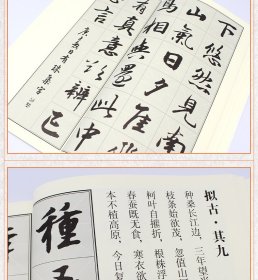 下悠然見南
山氣日夕佳
鳥相與還此中
有真意欲辨已
忘言
拟古·其九
种桑长江边，三年望当
枝条始欲茂，忽值山
柯叶自摧折，根株浮
春蚕既无食，寒衣欲
本不植高原，今日复
種